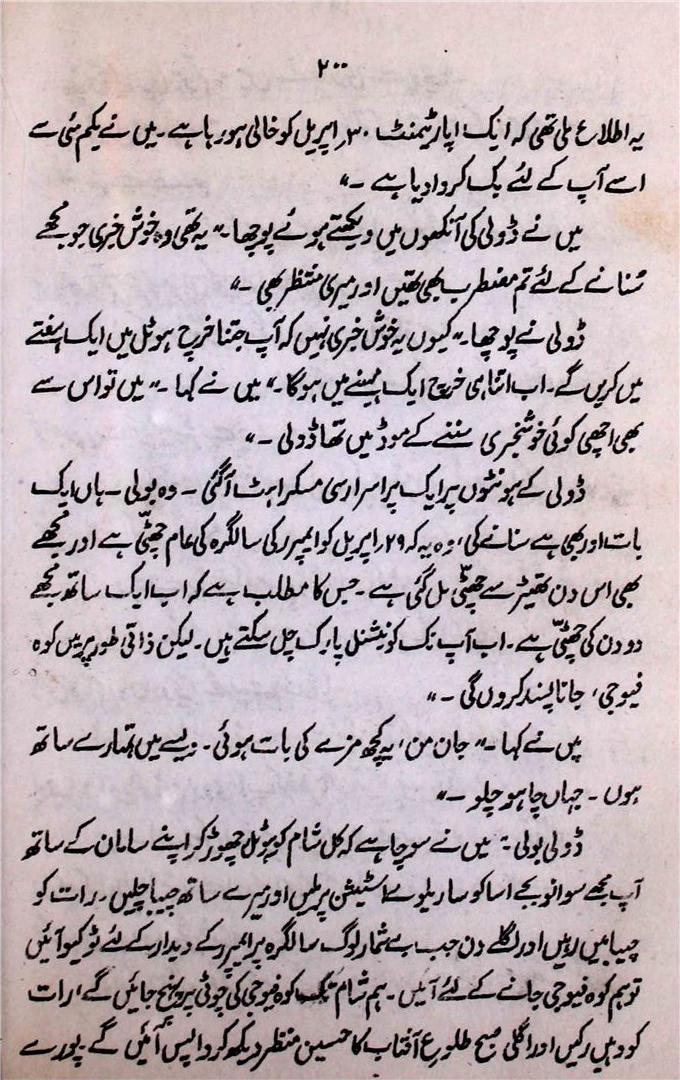 ۲۰۰
یہ اطلاع ملی تھی کہ ایک اپارٹمنٹ ۳۰؍ اپریل کو خالی ہو رہا ہے ۔ میں نے یکم مئی سے
اسے آپ کے لئے بک کروا دیا ہے ۔"
میں نے ڈولی کی آنکھوں میں دیکھتے ہوئے پوچھا۔" یہ تھی وہ خوش خبری جو مجھے
سُنانے کے لئے تم مضطرب بھی تھیں اور میری منتظر بھی ۔"
ڈولی نے پوچھا۔" کیوں یہ خوش خبری نہیں کہ آپ جتنا خرچ ہوٹل میں ایک ہفتے
میں کریں گے ۔ اب اتنا ہی خرچ ایک مہینے میں ہوگا ۔" میں نے کہا ۔" میں تو اس سے
بھی اچھی کوئی خوشخبری سننے کے موڈ میں تھا ڈولی ۔"
ڈولی کے ہونٹوں پر ایک پراسرار سی مسکراہٹ آگئی ۔ وہ بولی ۔ ہاں ایک
بات اور بھی ہے سنانے کی، وہ یہ کہ ۲۹؍ اپریل کو ایمپرر کی سالگرہ کی عام چھٹی ہے اور مجھے
بھی اس دن تھیٹر سے چھٹی مل گئی ہے ۔ جس کا مطلب ہے کہ اب ایک ساتھ مجھے
دو دن کی چھٹی ہے ۔ اب آپ نکو نیشنل پارک چل سکتے ہیں ۔ لیکن ذاتی طور پر میں کوہ
فیوجی، جانا پسند کروں گی ۔"
میں نے کہا ۔" جان من، یہ کچھ مزے کی بات ہوئی ۔ ویسے میں تمہارے ساتھ
ہوں ۔ جہاں چاہو چلو ۔"
ڈولی بولی ۔" میں نے سوچا ہے کہ کل شام کو ہوٹل چھوڑ کر اپنے سامان کے ساتھ
آپ مجھے سوا نو بجے اساکوسا ریلوے اسٹیشن پر ملیں اور میرے ساتھ چیبا چلیں ۔ رات کو
چیبا میں رہیں اور اگلے دن جب بے شمار لوگ سالگرہ پر ایمپرر کے دیدار کے لئے ٹوکیو آئیں
تو ہم کوہ فیوجی جانے کے لئے آئیں ۔ ہم شام تک کوہ فیوجی کی چوٹی پر پہنچ جائیں گے، رات
کو وہیں رکیں اور اگلی صبح طلوعِ آفتاب کا حسین منظر دیکھ کر واپس آئیں گے ۔ پورے